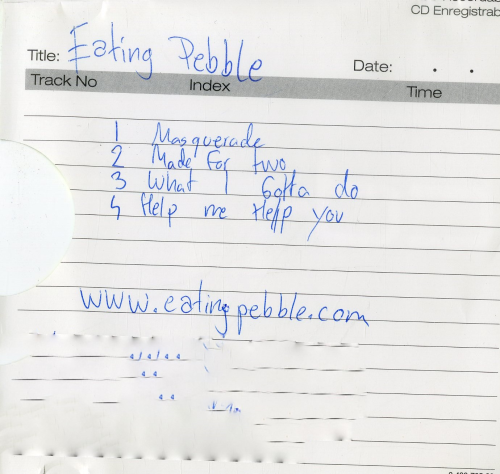 CD Enregistrab
Title: Eating Pebble
Date: . .
Track No Index Time
1 Masquerade
2 Made for two
3 What I Gotta do
4 Help me Help you
www.eatingpebble.com